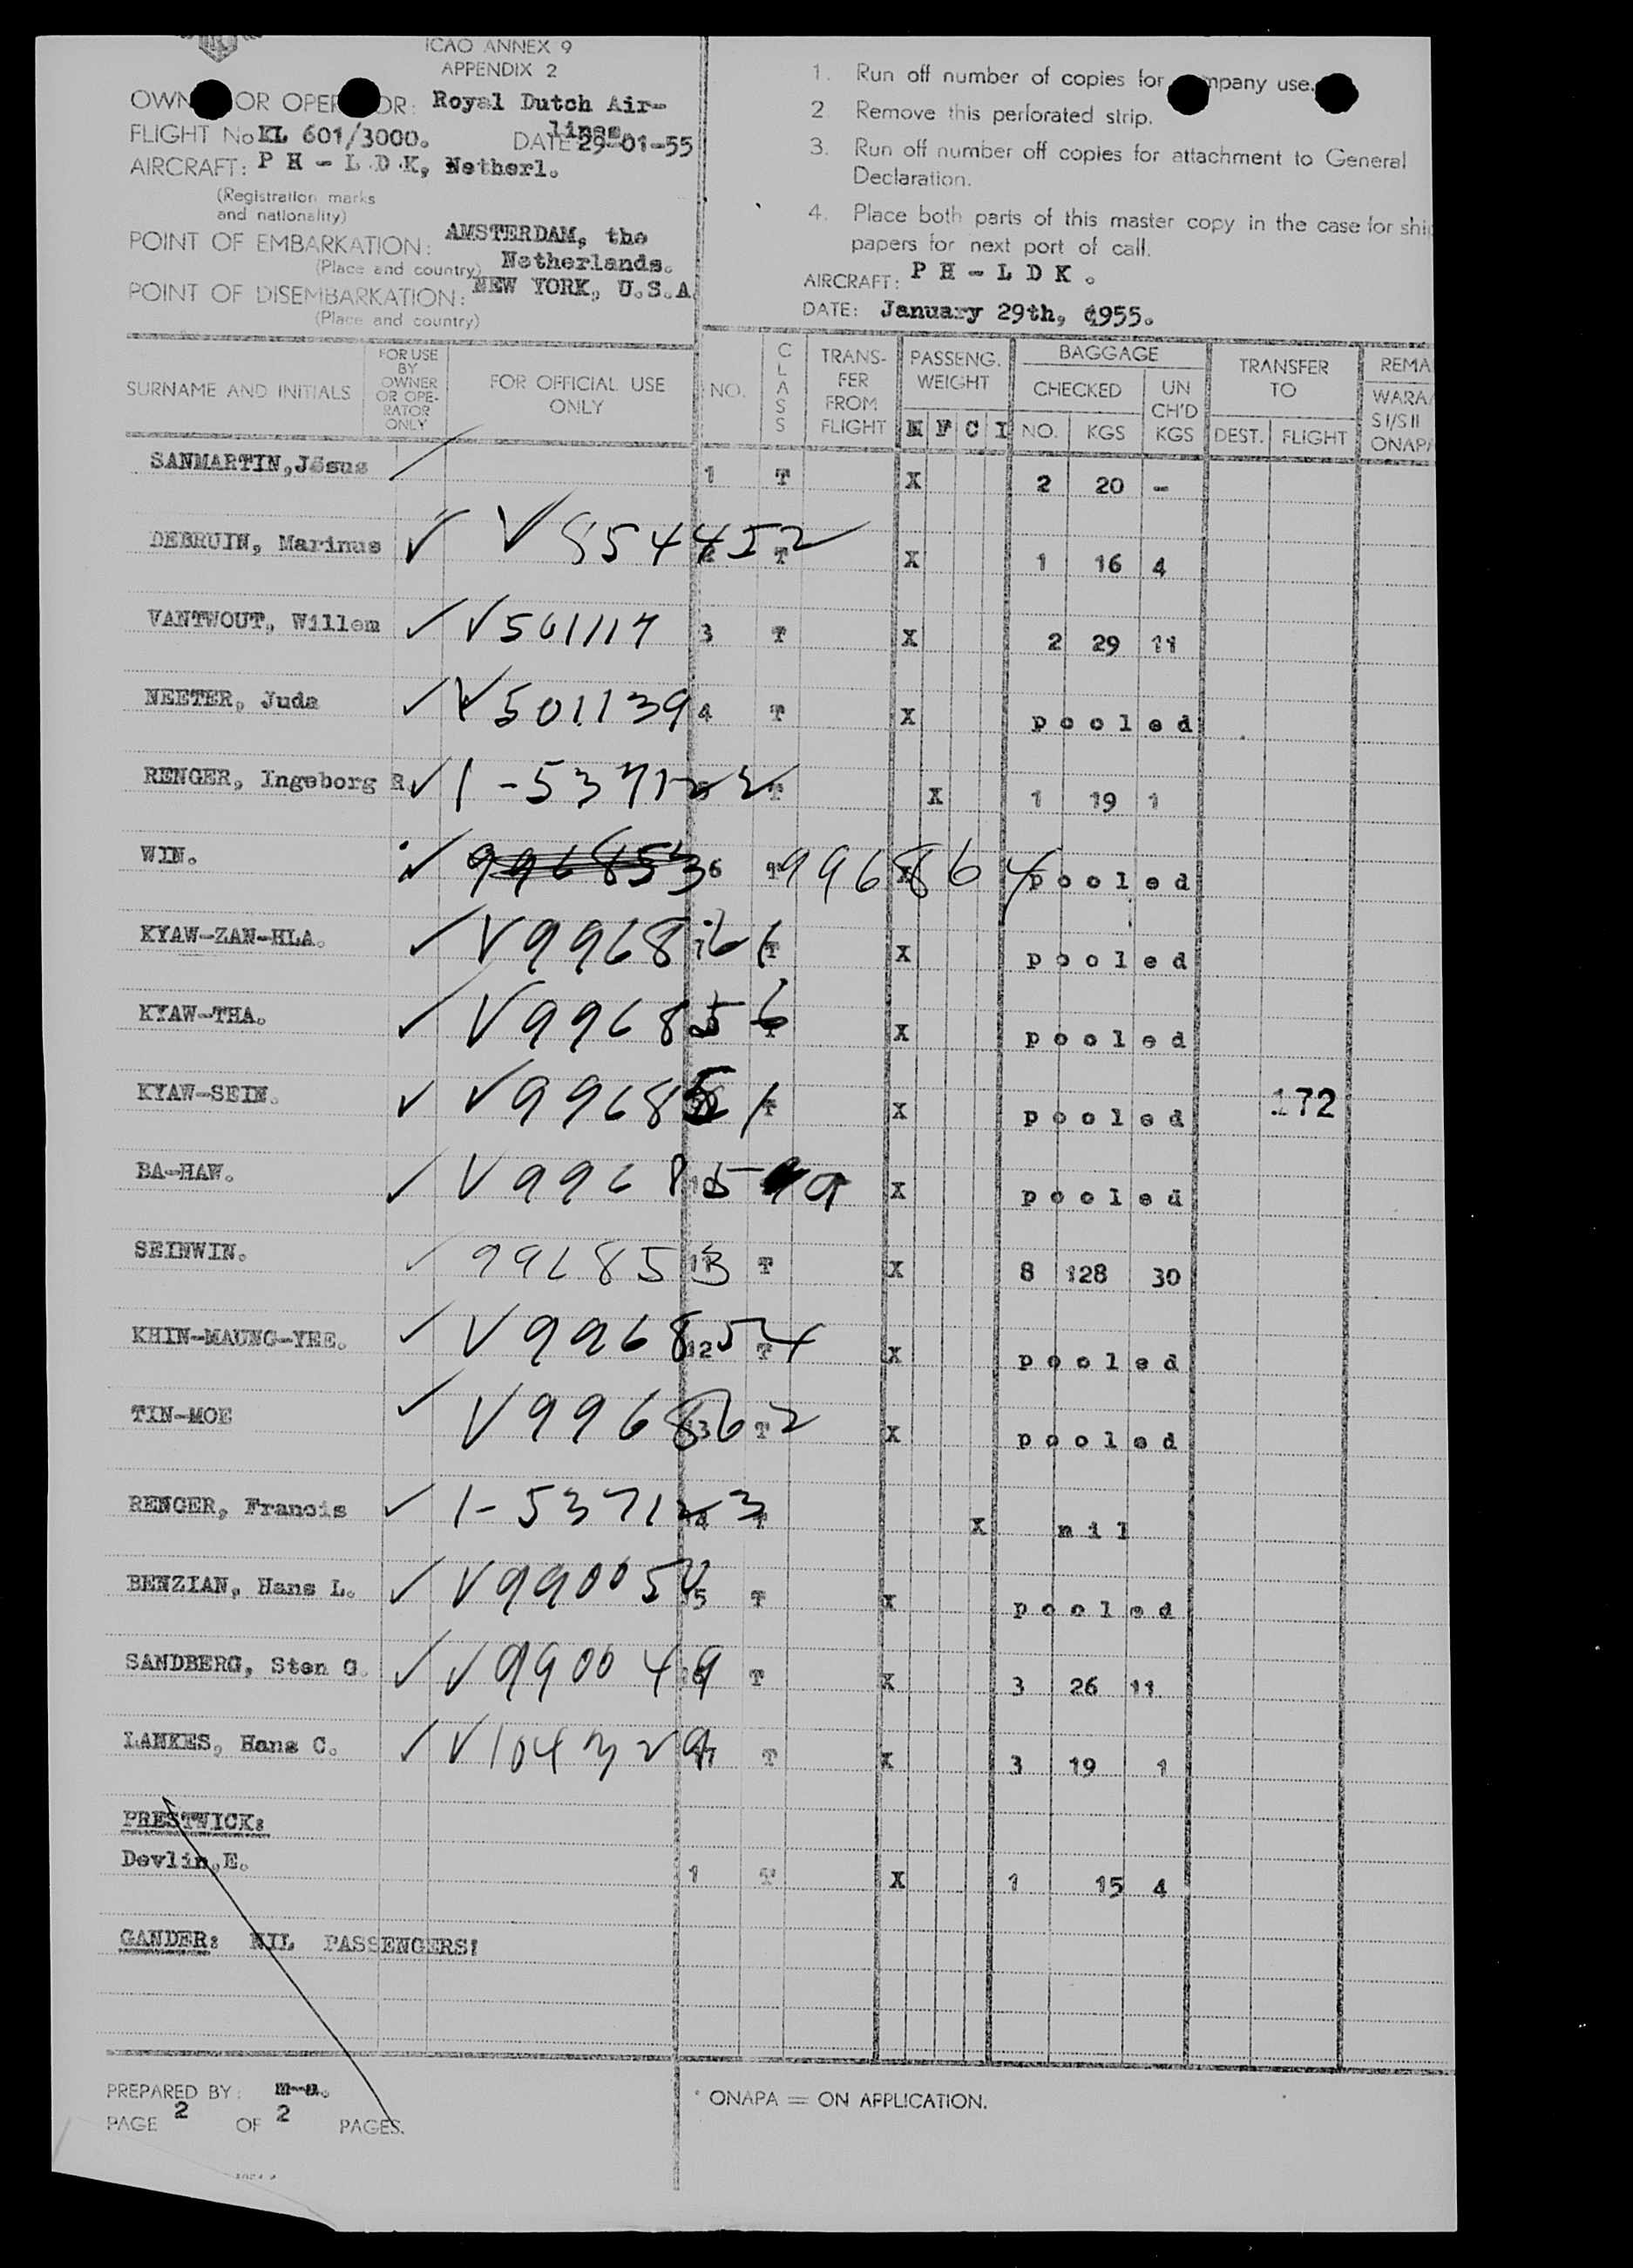 ICAO ANNEX 9
APPENDIX 2
OWN OR OPER OR: Royal Dutch Air-
lines.
FLIGHT No KL 601/3000. DATE 29-01-55
AIRCRAFT: P H - L D K, Netherl.
(Registration marks
and nationality)
POINT OF EMBARKATION: AMSTERDAM, the
(Place and country) Netherlands.
POINT OF DISEMBARKATION: NEW YORK, U.S.A.
(Place and country)
1. Run off number of copies for mpany use.
2 Remove this perforated strip.
3. Run off number off copies for attachment to General
Declaration.
4. Place both parts of this master copy in the case for ship
papers for next port of call.
AIRCRAFT: P H - L D K .
DATE: January 29th, 1955.
SURNAME AND INITIALS
FOR USE
BY
OWNER
OR OPE-
RATOR
ONLY
FOR OFFICIAL USE
ONLY
NO.
CLASS
TRANS-
FER
FROM
FLIGHT
PASSENG.
WEIGHT
M F C I
BAGGAGE
CHECKED
NO. KGS
UN
CH'D
KGS
TRANSFER
TO
DEST. FLIGHT
REMA
WARA
S I/S II
ONAPA
SANMARTIN, Jésus 1 T X 2 20 -
DEBRUIN, Marinus ✓ V 854452 2 T X 1 16 4
VANTWOUT, Willem ✓ V 501117 3 T X 2 29 11
NEETER, Juda ✓ V 501139 4 T X pooled
RENGER, Ingeborg R. ✓ 1-537122 5 T X 1 19 1
WIN. ✓ 996853 6 T 996864 X pooled
KYAW-ZAN-HLA. ✓ V 996861 7 T X pooled
KYAW-THA. ✓ V 996856 8 T X pooled
KYAW-SEIN. ✓ V 996851 T X pooled 172
BA-HAW. ✓ V 996859 10 X pooled
SEINWIN. ✓ 996853 11 T X 8 128 30
KHIN-MAUNG-YEE. ✓ V 996854 12 T X pooled
TIN-MOE ✓ V 996862 13 T X pooled
RENGER, Francis ✓ 1-537123 14 T X nil
BENZIAN, Hans L. ✓ V 990050 15 T X pooled
SANDBERG, Sten G. ✓ V 990049 16 T X 3 26 11
LANKES, Hans C. ✓ V 104329 17 T X 3 19 1
PRESTWICK:
Devlin, E. 1 T X 1 15 4
GANDER: NIL PASSENGERS!
PREPARED BY: m-a.
PAGE 2 OF 2 PAGES.
ONAPA = ON APPLICATION.